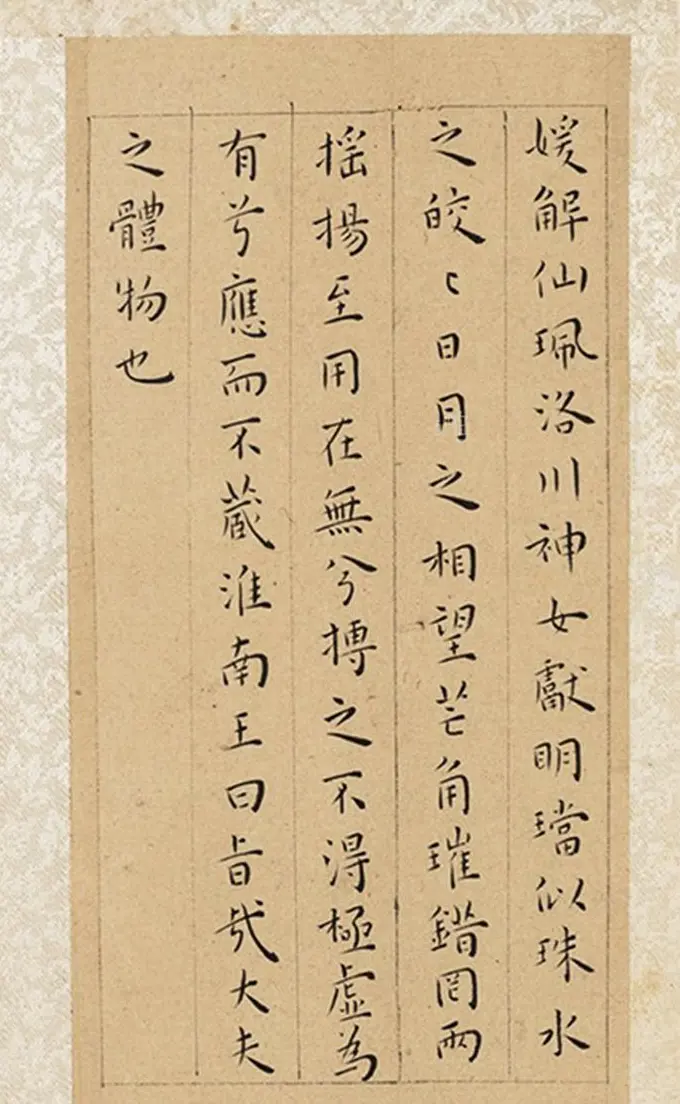 媛解仙珮洛川神女獻明璫似珠水
之皎〻日月之相望芒角璀錯罔兩
摇揚至用在無兮搏之不得極虛為
有兮應而不蔵淮南王曰旨哉大夫
之體物也